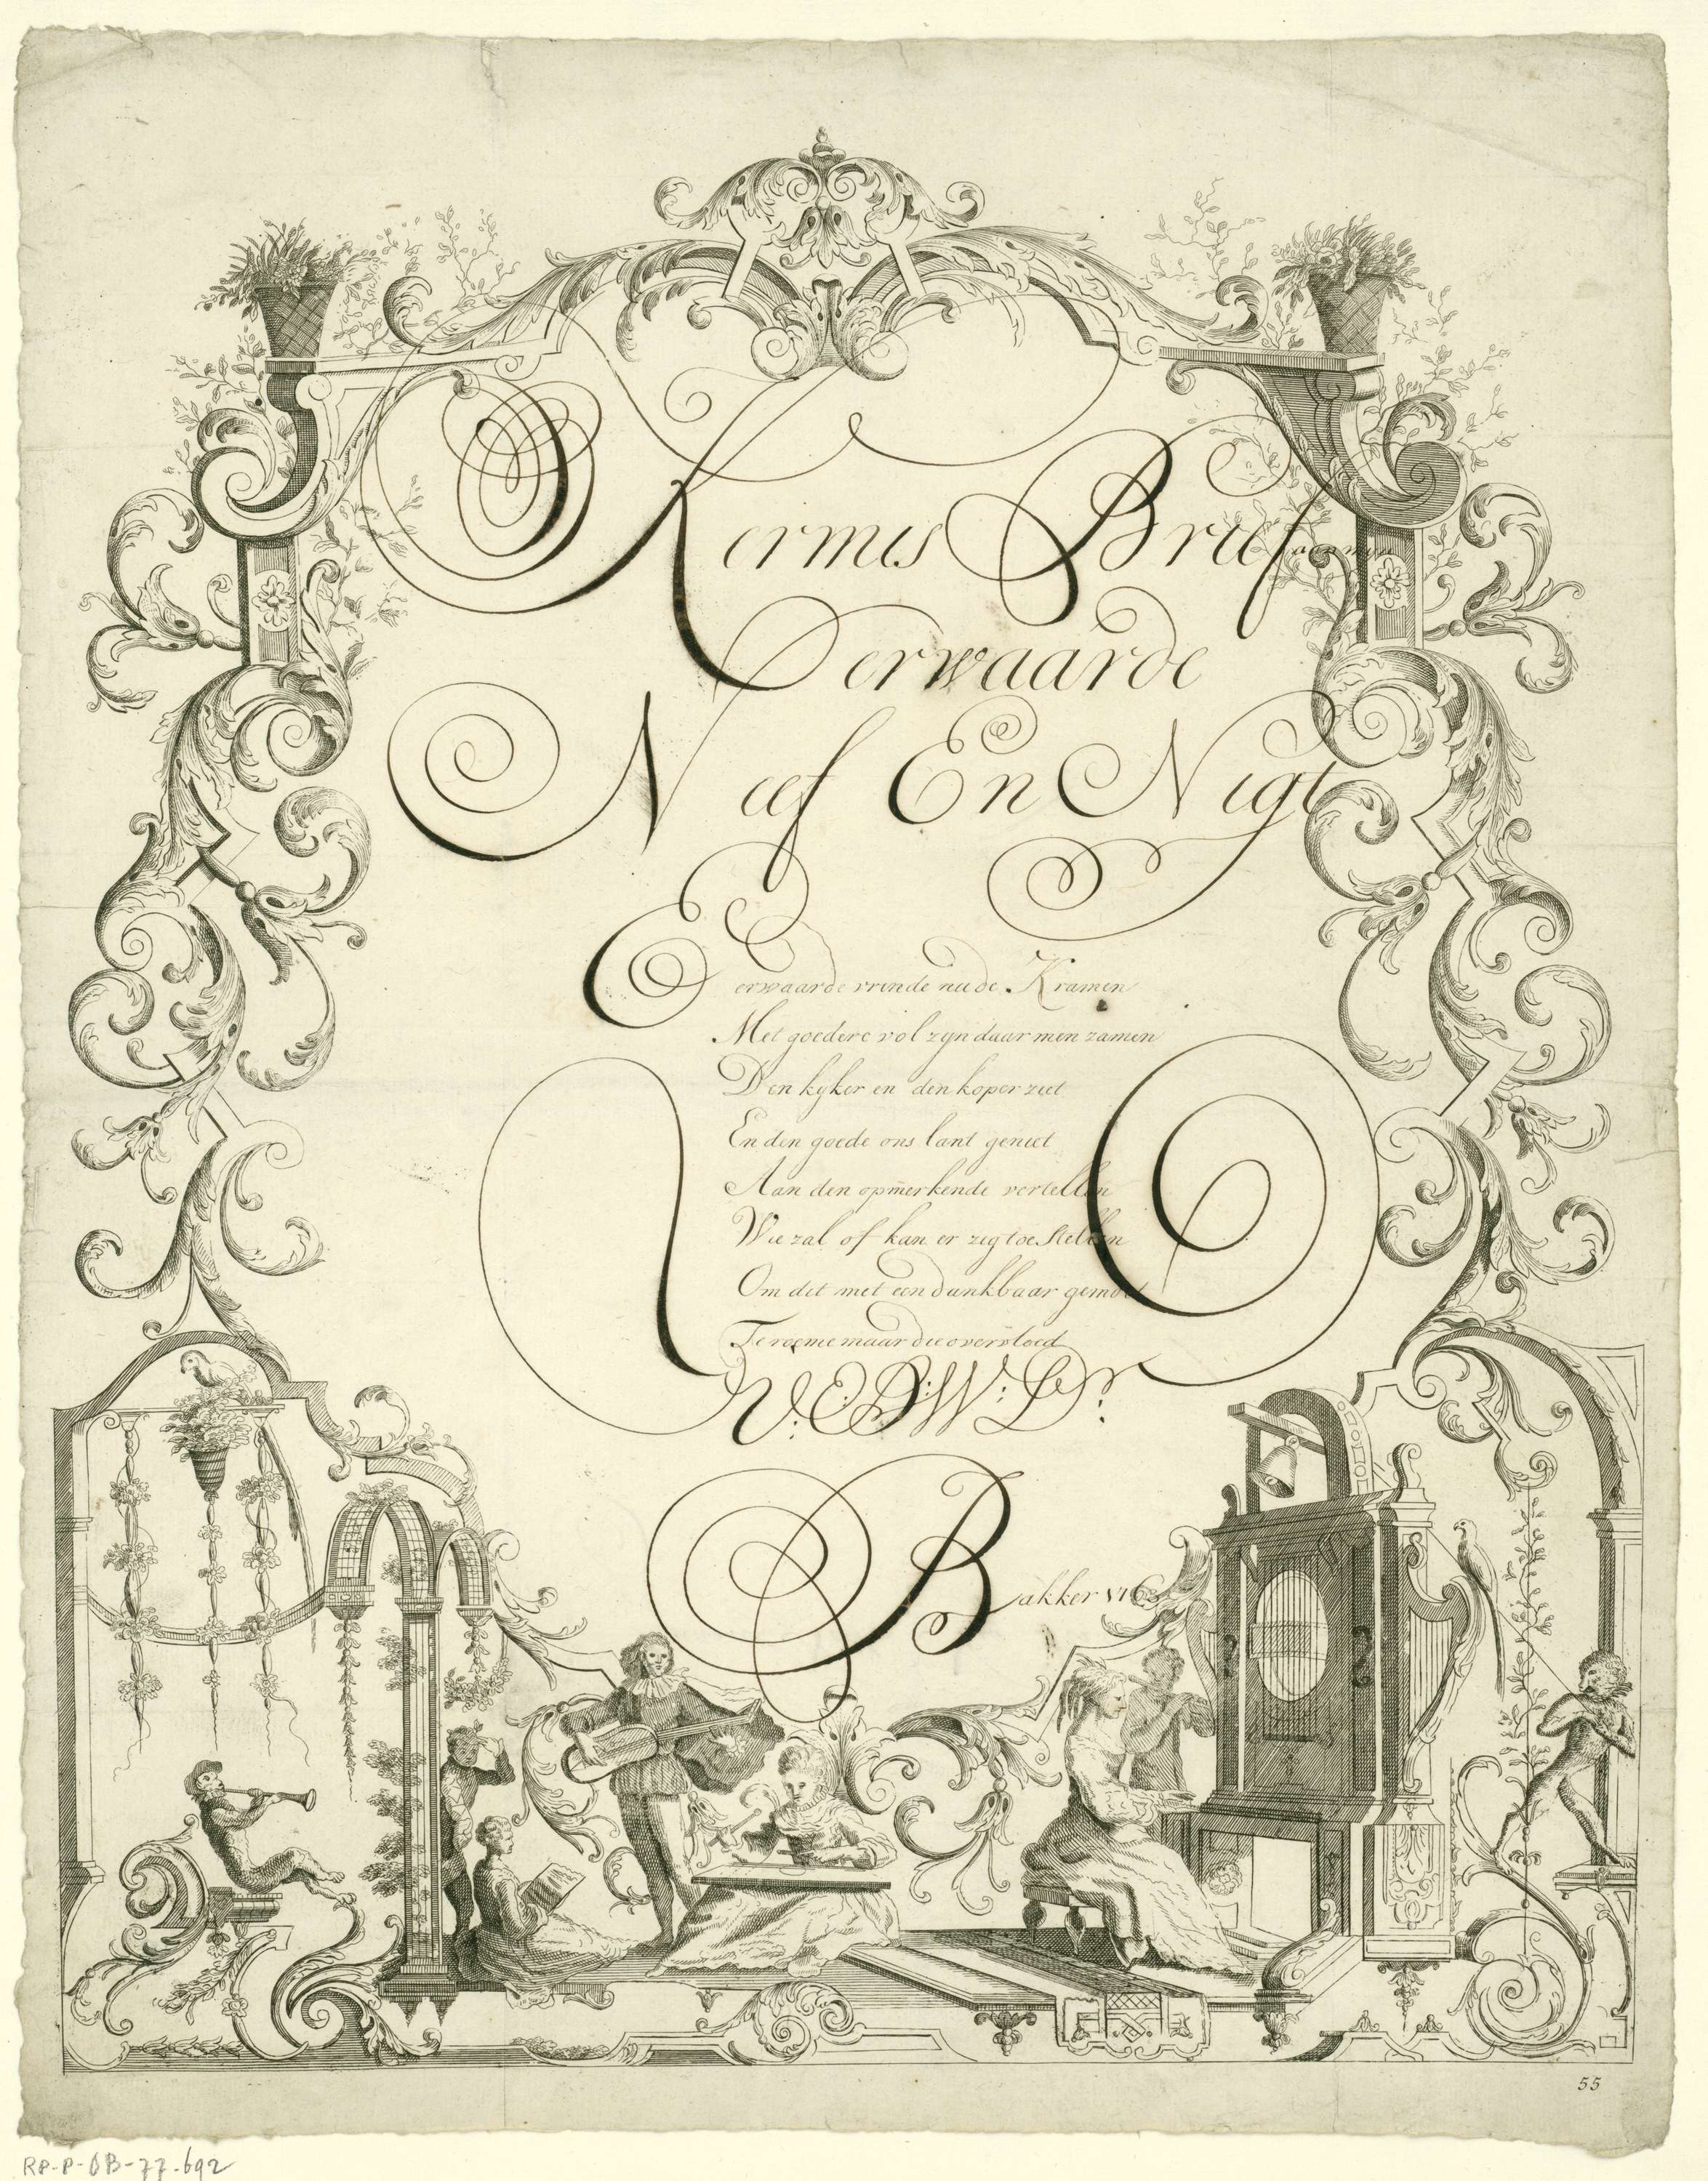 Kermis Brief
Eerwaarde
Neef En Nigt
Eerwaarde vrinde nu de Kramen
Met goedere vol zyn daar men zamen
Den kyker en den koper ziet
En den goede ons lant geniet
Aan den opmerkende vertellen
Wie zal of kan er zig toe stellen
Om dit met een dankbaar gemoet
Te roeme maar die overvloed
V:E:D:W:Dr:
Bakker 176
55
RP-P-OB-77.692